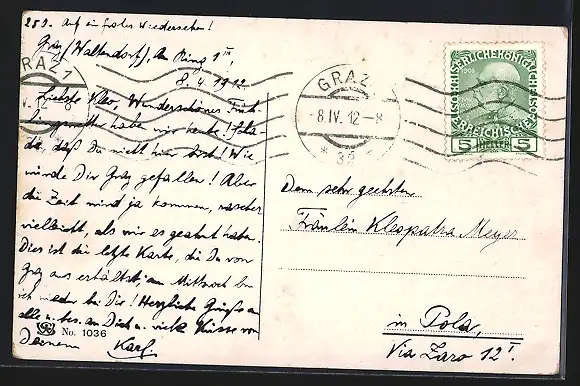 259. Auf ein frohes Wiedersehen!
Graz/Waltendorf, Am Ring 1 III,
8. 4. 1912
Liebste Kleo, Wunderschönes Früh-
lingswetter haben wir heute! Scha-
de, daß Du nicht hier bist! Wie
würde Dir Graz gefallen! Aber
die Zeit wird ja kommen, rascher
vielleicht, als wir es geahnt haben.
Dies ist die letzte Karte, die Du von
Graz aus erhältst; am Mittwoch bin
ich wieder bei Dir! Herzliche Grüße an
alle u. bes. an Dich u. viele Küsse von
Deinem Karl
No. 1036
GRAZ 1
GRAZ
8.IV.12-8
KAISERLICHE KÖNIGLICHE
ÖSTERREICHISCHE
5 HELLER 5
Dem sehr geehrten
Fräulein Kleopatra Meyer
in Pola,
Via Zaro 12 I.